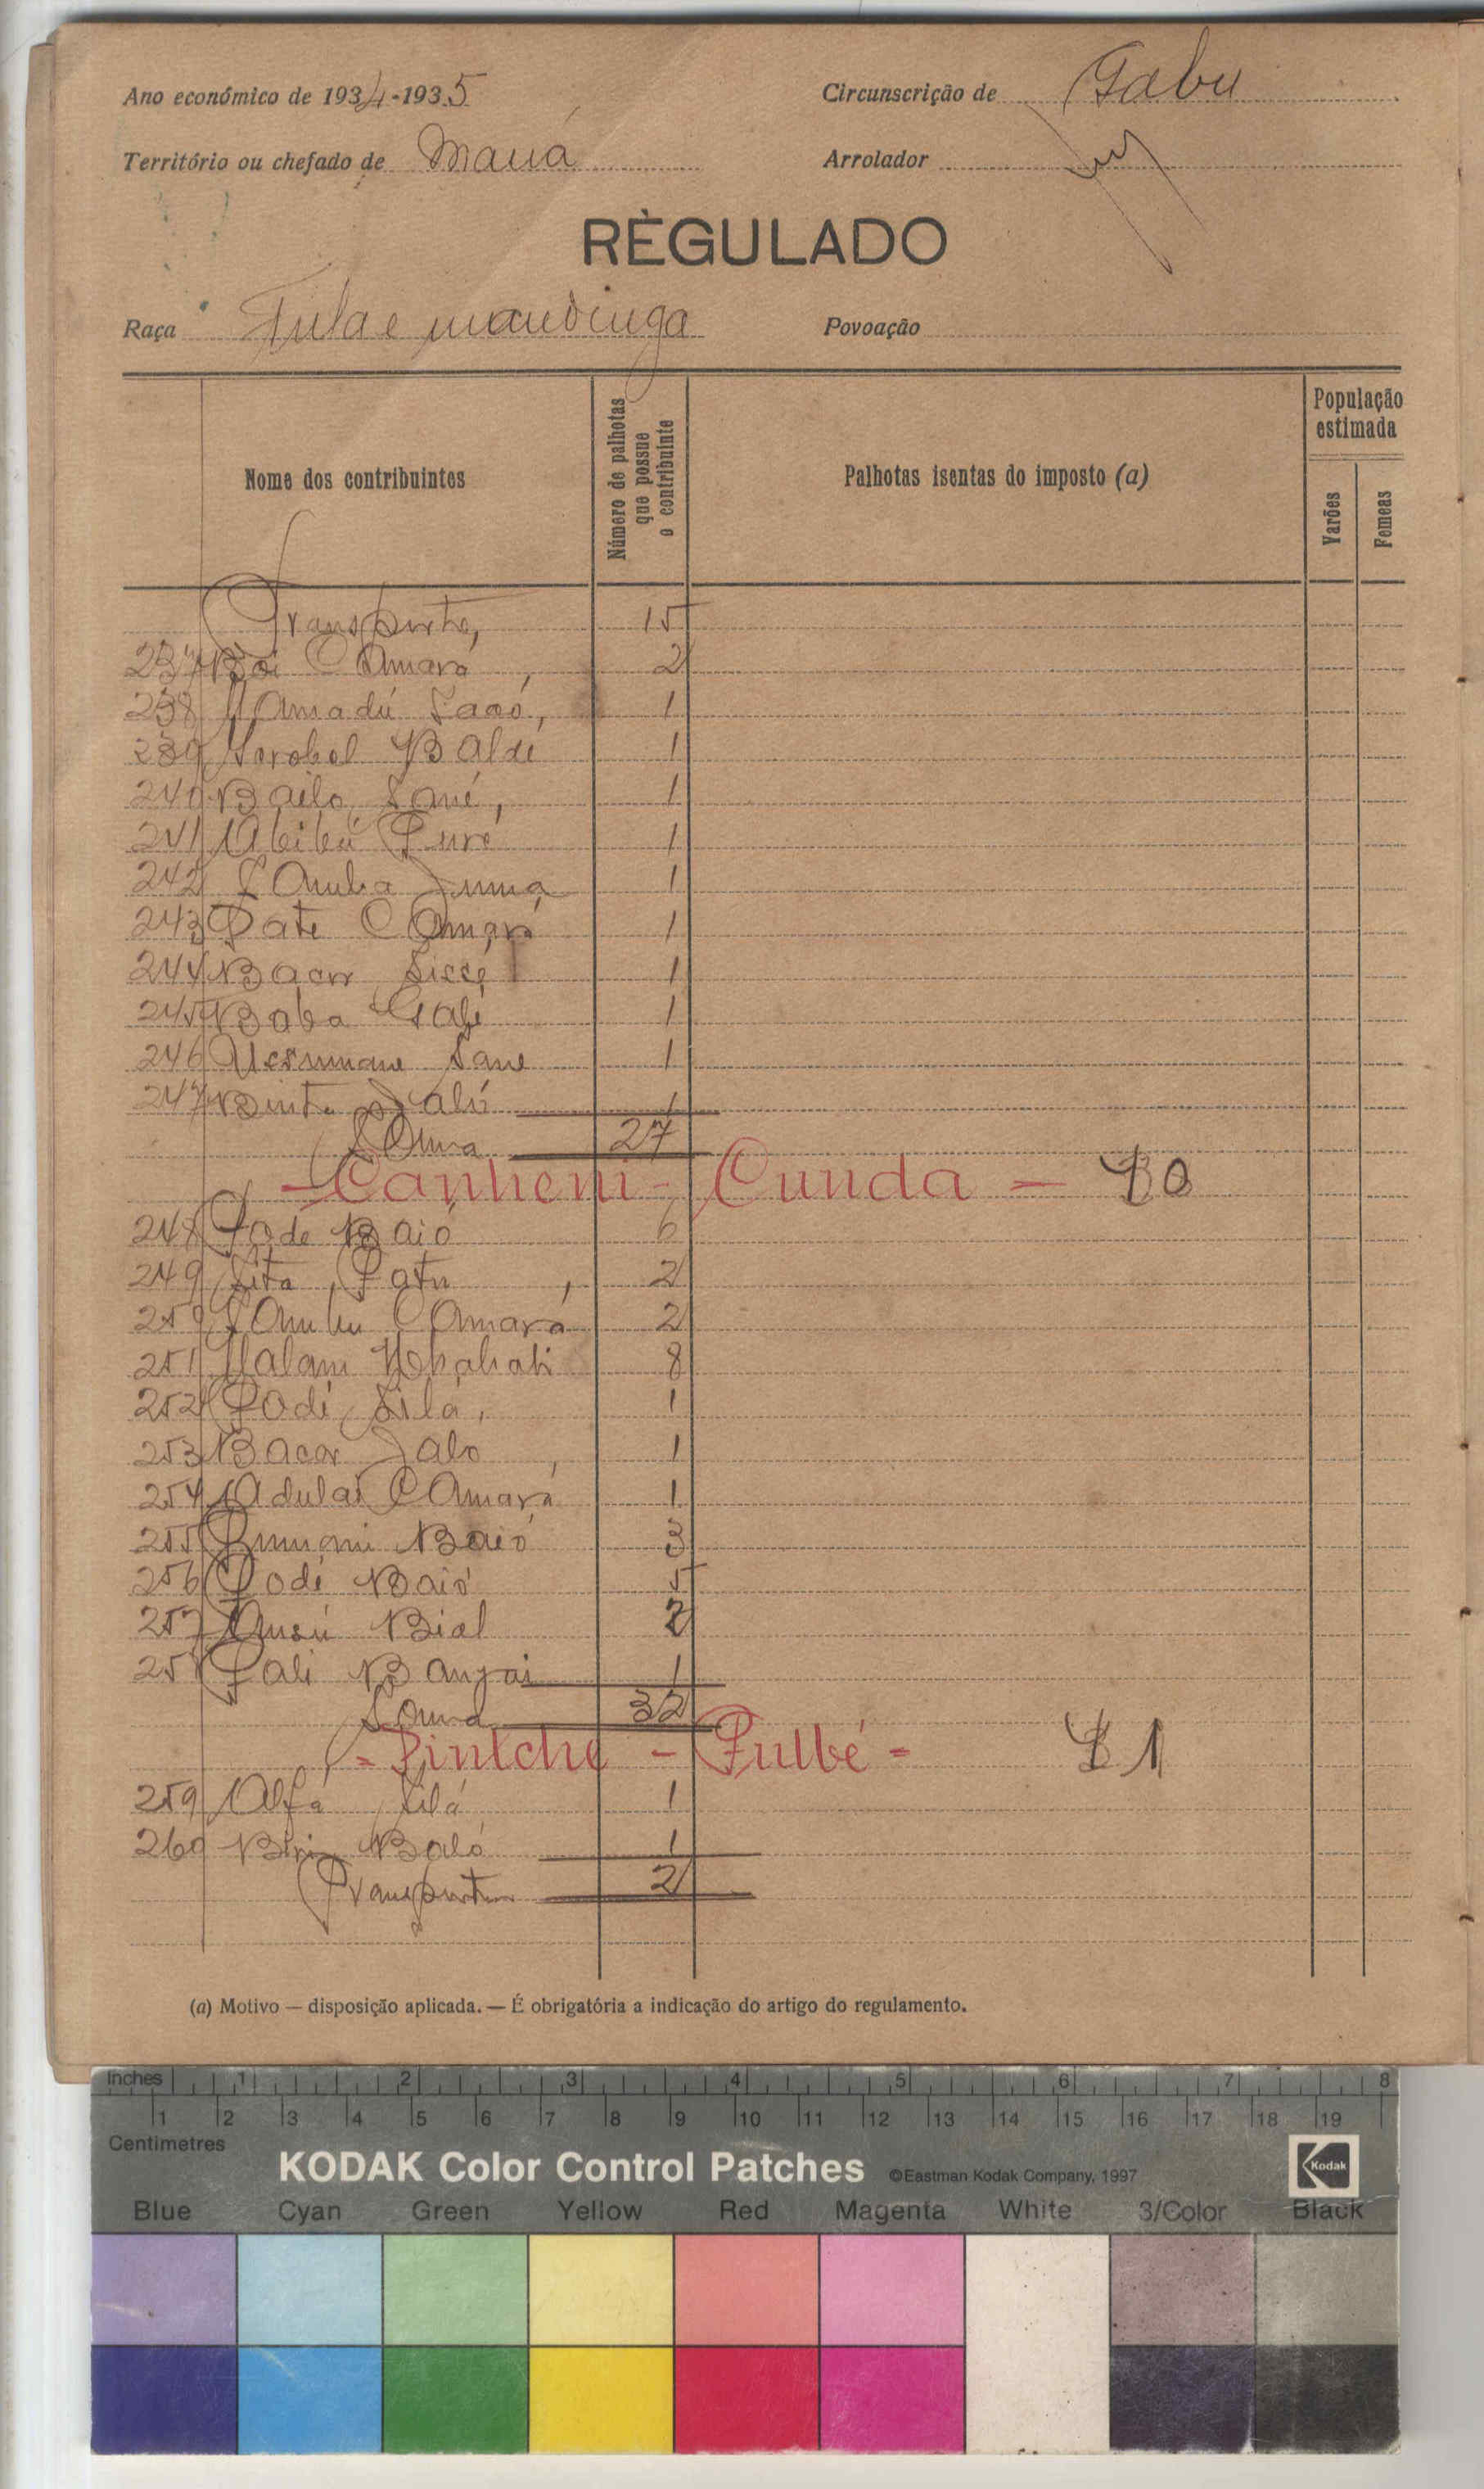 Ano económico de 1934-1935 Circunscrição de Gabu
Território ou chefado de Maná Arrolador
RÈGULADO
Raça Fula e mandinga Povoação
Nome dos contribuintes
Número de palhotas que possue o contribuinte
Palhotas isentas do imposto (a)
População estimada
Varões
Femeas
Transporte, 15
237 Boi Camará, 2
238 Mamadú 1
239 Baldé 1
240 Bailo Sané, 1
241 Abibú Turé 1
242 Samba Juma 1
243 Pate Camará 1
244 Bacar Sissé 1
245 Baba 1
246 Sane 1
247 Binta Jaló 1
Soma 27
- Canheni - Cunda - 80
248 Fode Baió 6
249 Sita Fatu, 2
250 Sambu Camará 2
251 Malam 8
252 Fodé Silá, 1
253 Bacar Jalo, 1
254 Adulai Camará 1
255 Baió 3
256 Fodé Baió 5
257 Ansú Bial 2
258 Fali Banjai 1
Soma 32
- Pintche - Fulbé - 81
259 Alfá Silá 1
260 Baló 1
Transporte 2
(a) Motivo — disposição aplicada. — É obrigatória a indicação do artigo do regulamento.
Inches 1 2 3 4 5 6 7 8
1 2 3 4 5 6 7 8 9 10 11 12 13 14 15 16 17 18 19
Centimetres
KODAK Color Control Patches ©Eastman Kodak Company, 1997 Kodak
Blue Cyan Green Yellow Red Magenta White 3/Color Black